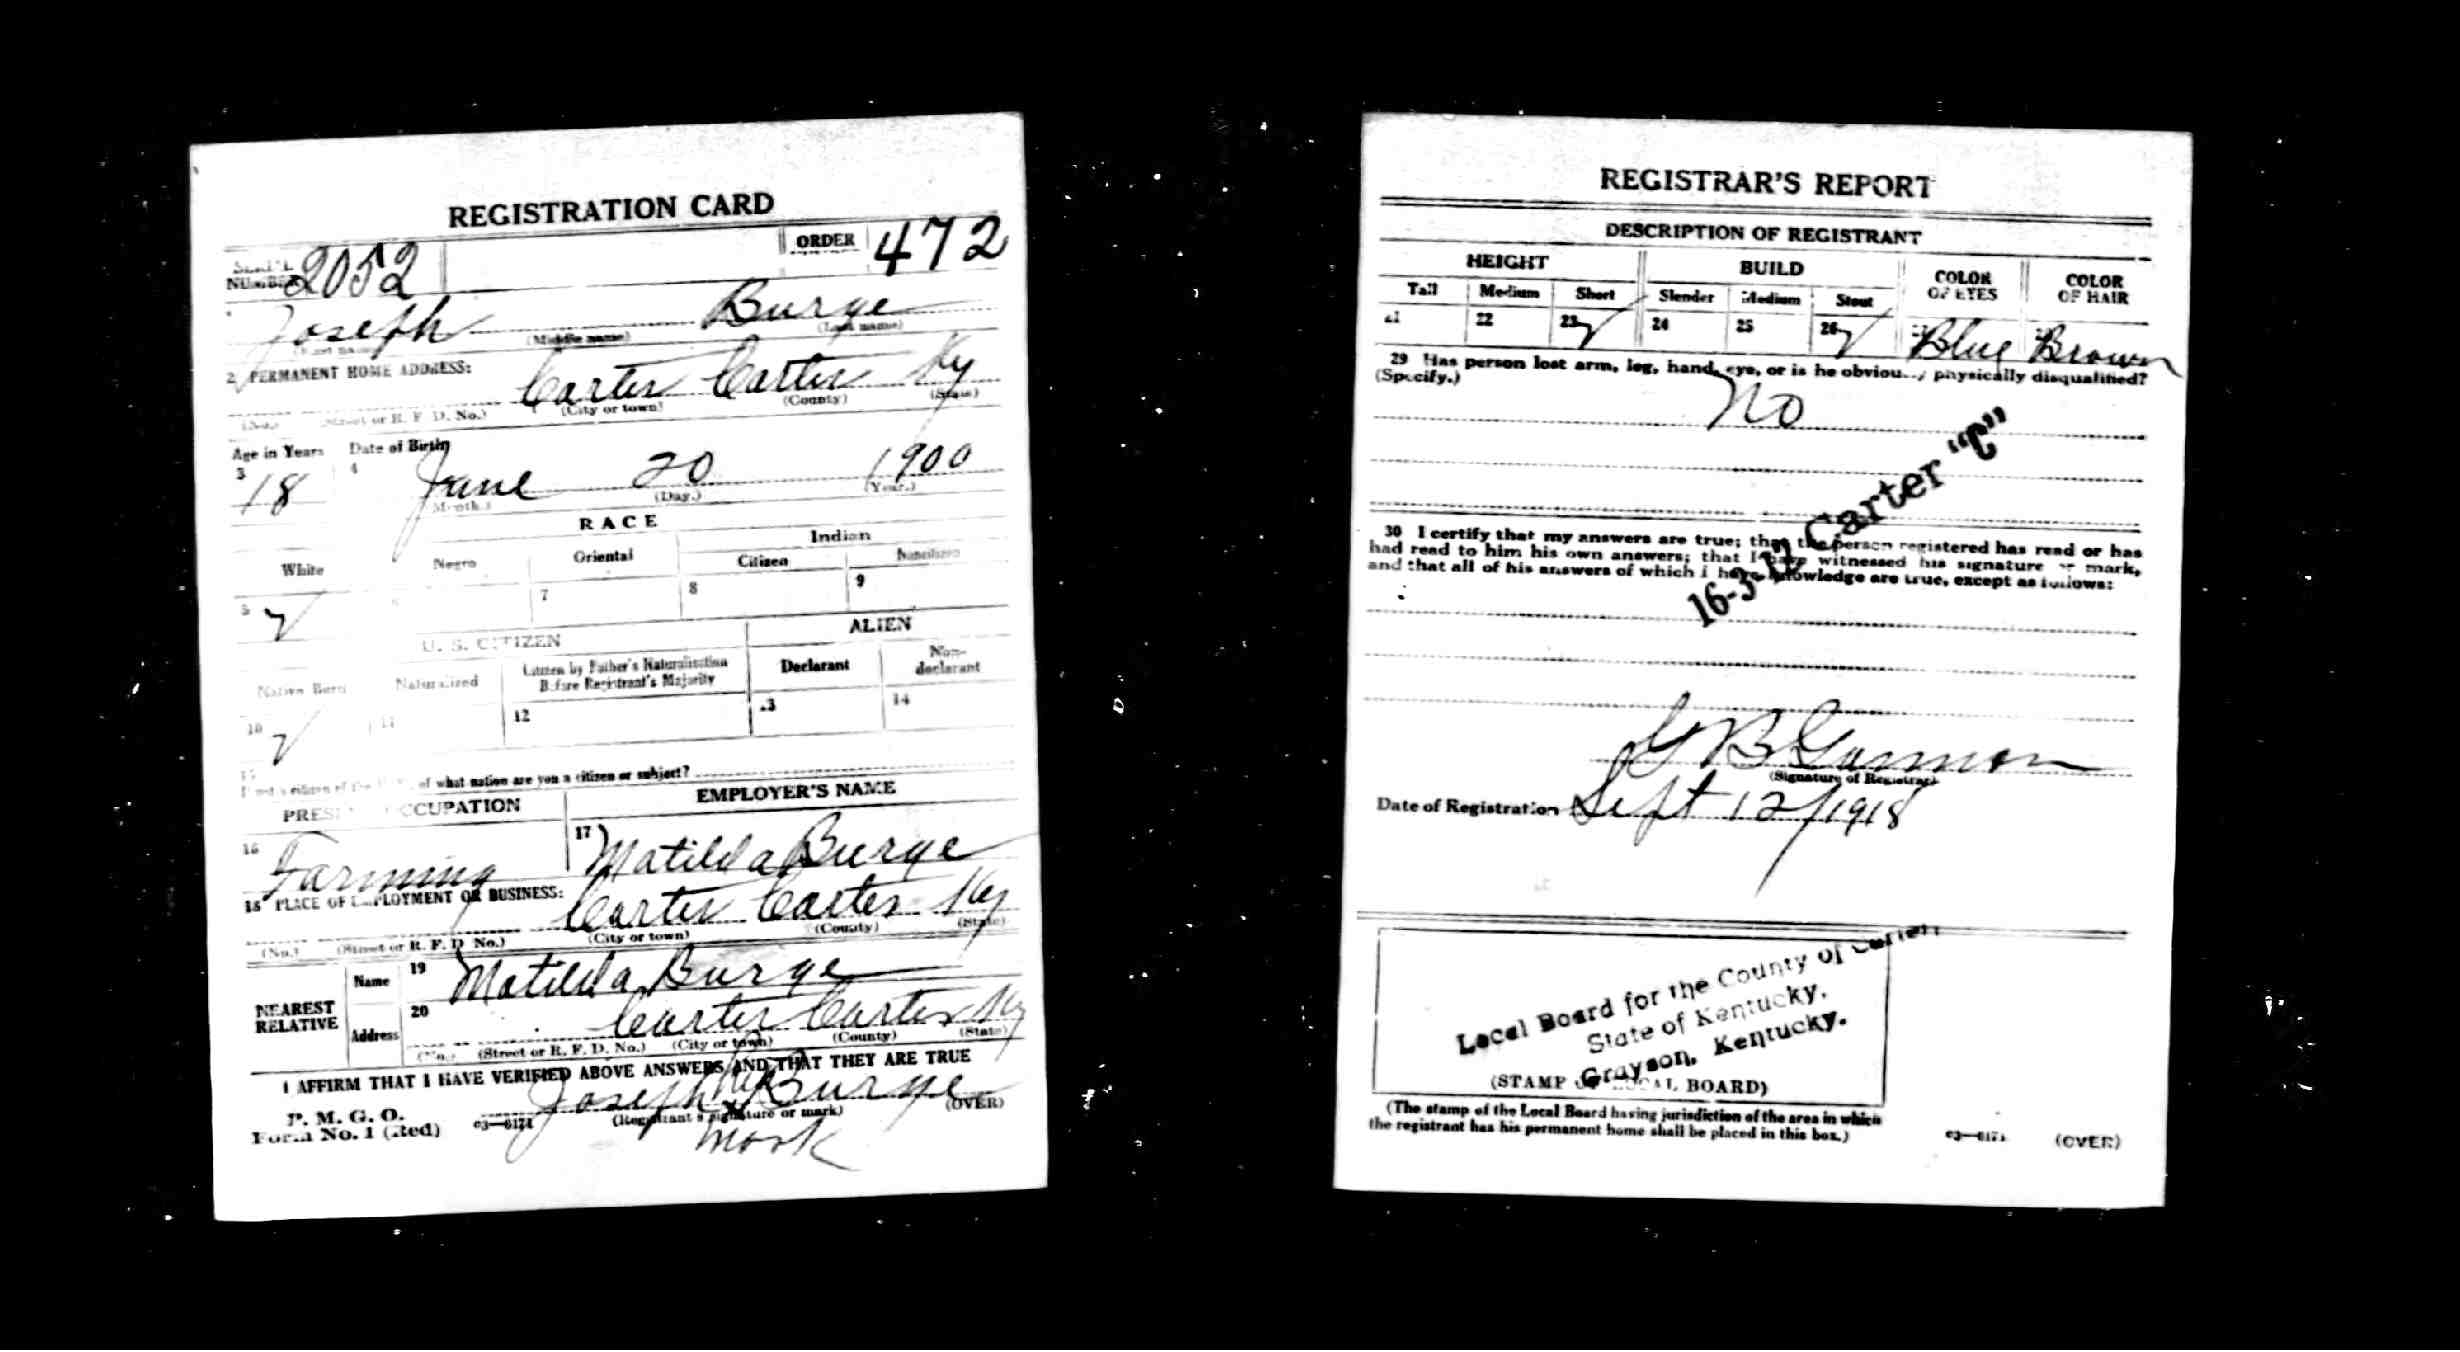 REGISTRATION CARD
SERIAL NUMBER 2052 ORDER 472
Joseph Burge
(First name) (Middle name) (Last name)
2 PERMANENT HOME ADDRESS:
Carter Carter Ky
(No.) (Street or R. F. D. No.) (City or town) (County) (State)
Age in Years Date of Birth
3 18 4 June 20 1900
(Month.) (Day.) (Year.)
RACE
White Negro Oriental Indian
Citizen Noncitizen
5 ✓ 6 7 8 9
U. S. CITIZEN ALIEN
Native Born Naturalized Citizen by Father's Naturalization Before Registrant's Majority Declarant Non-declarant
10 ✓ 11 12 13 14
15
of what nation are you a citizen or subject?
PRESENT OCCUPATION EMPLOYER'S NAME
16 Farming 17 Matilda Burge
18 PLACE OF EMPLOYMENT OR BUSINESS:
Carter Carter Ky
(No.) (Street or R. F. D. No.) (City or town) (County) (State)
NEAREST RELATIVE Name 19 Matilda Burge
Address 20 Carter Carter Ky
(No.) (Street or R. F. D. No.) (City or town) (County) (State)
I AFFIRM THAT I HAVE VERIFIED ABOVE ANSWERS AND THAT THEY ARE TRUE
P. M. G. O.
Form No. 1 (Red)
Joseph his x Burge
(Registrant's signature or mark) (OVER)
mark
REGISTRAR'S REPORT
DESCRIPTION OF REGISTRANT
HEIGHT BUILD COLOR OF EYES COLOR OF HAIR
Tall Medium Short Slender Medium Stout
21 22 23 ✓ 24 25 26 ✓ Blue Brown
29 Has person lost arm, leg, hand, eye, or is he obviously physically disqualified?
(Specify.)
No
16-3-12 Carter "C"
30 I certify that my answers are true; that the person registered has read or has
had read to him his own answers; that I have witnessed his signature or mark,
and that all of his answers of which I have knowledge are true, except as follows:
(Signature of Registrar)
Date of Registration Sept 12/1918
Local Board for the County of Carter,
State of Kentucky,
Grayson, Kentucky.
(STAMP OF LOCAL BOARD)
(The stamp of the Local Board having jurisdiction of the area in which
the registrant has his permanent home shall be placed in this box.)
(OVER)